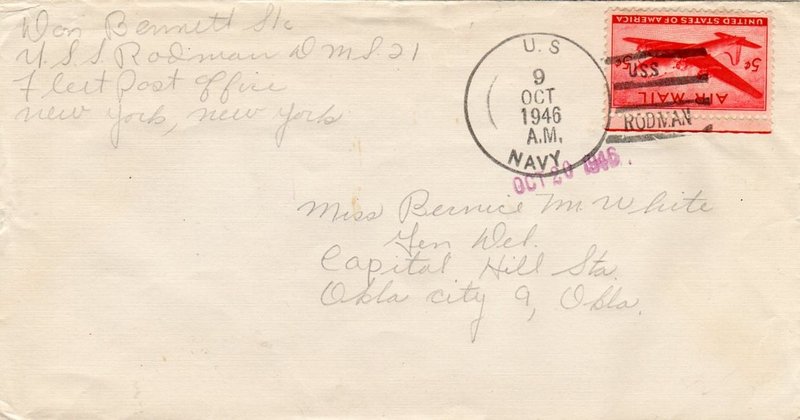 Don Bennett S1c
U.S.S Rodman D M S. 21
Fleet Post Office
New York, New York
U.S
9
OCT
1946
A.M.
NAVY
UNITED STATES OF AMERICA
5¢ 5¢
AIR MAIL
USS
RODMAN
OCT 20 1946
Miss Bernice M. White
Gen Del.
Capital Hill Sta.
Okla City 9, Okla.